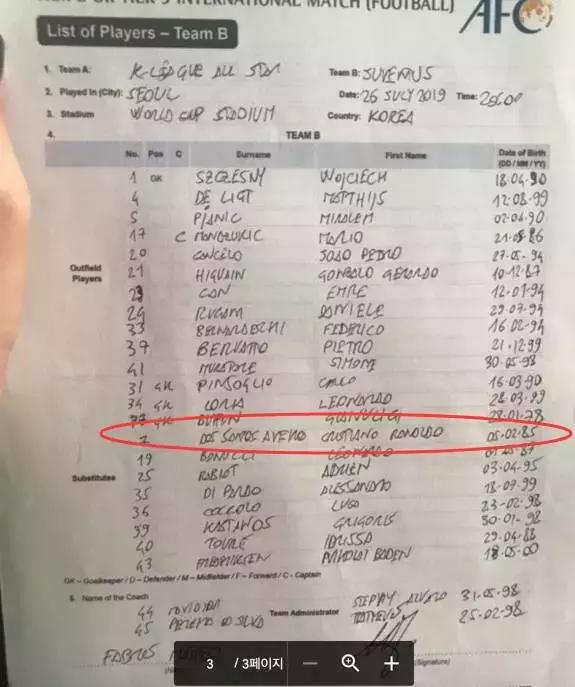 INTERNATIONAL MATCH (FOOTBALL)
AFC
List of Players – Team B
1. Team A: K-LEAGUE ALL STAR Team B: JUVENTUS
2. Played in (City): SEOUL Date: 26 JULY 2019 Time: 20:00
3. Stadium WORLD CUP STADIUM Country: KOREA
4. TEAM B
No. Pos C Surname First Name Date of Birth (DD / MM / YY)
1 GK SZCZESNY WOJCIECH 18.04.90
4 DE LIGT MATTHIJS 12.08.99
5 PJANIC MIRALEM 02.04.90
17 C MANDZUKIC MARIO 21.05.86
20 CANCELO JOAO PEDRO 27.05.94
Outfield Players
21 HIGUAIN GONZALO GERARDO 10.12.87
23 CAN EMRE 12.01.94
24 RUGANI DANIELE 29.07.94
33 BERNARDESCHI FEDERICO 16.02.94
37 BERUATTO PIETRO 21.12.99
41 MURATORE SIMONE 30.05.98
31 GK PINSOGLIO CARLO 16.03.90
34 GK LORIA LEONARDO 28.03.99
77 GK BUFFON GIANLUIGI 28.01.78
7 DOS SANTOS AVEIRO CRISTIANO RONALDO 05.02.85
19 BONUCCI LEONARDO
Substitutes
25 RABIOT ADRIEN 03.04.95
35 DI PARDO ALESSANDRO 18.07.99
36 COCCOLO LUCA 23-02-98
39 KASTANOS GRIGORIS 30.01-98
40 TOURÉ IDRISSA 29.04.98
43 NIKOLAI BADEN 18.05.00
GK – Goalkeeper / D – Defender / M – Midfielder / F – Forward / C - Captain
5. Name of the Coach Team Administrator
44 31.05-98
45 MATHEUS 25-02.98
(Signature)
3 / 3페이지